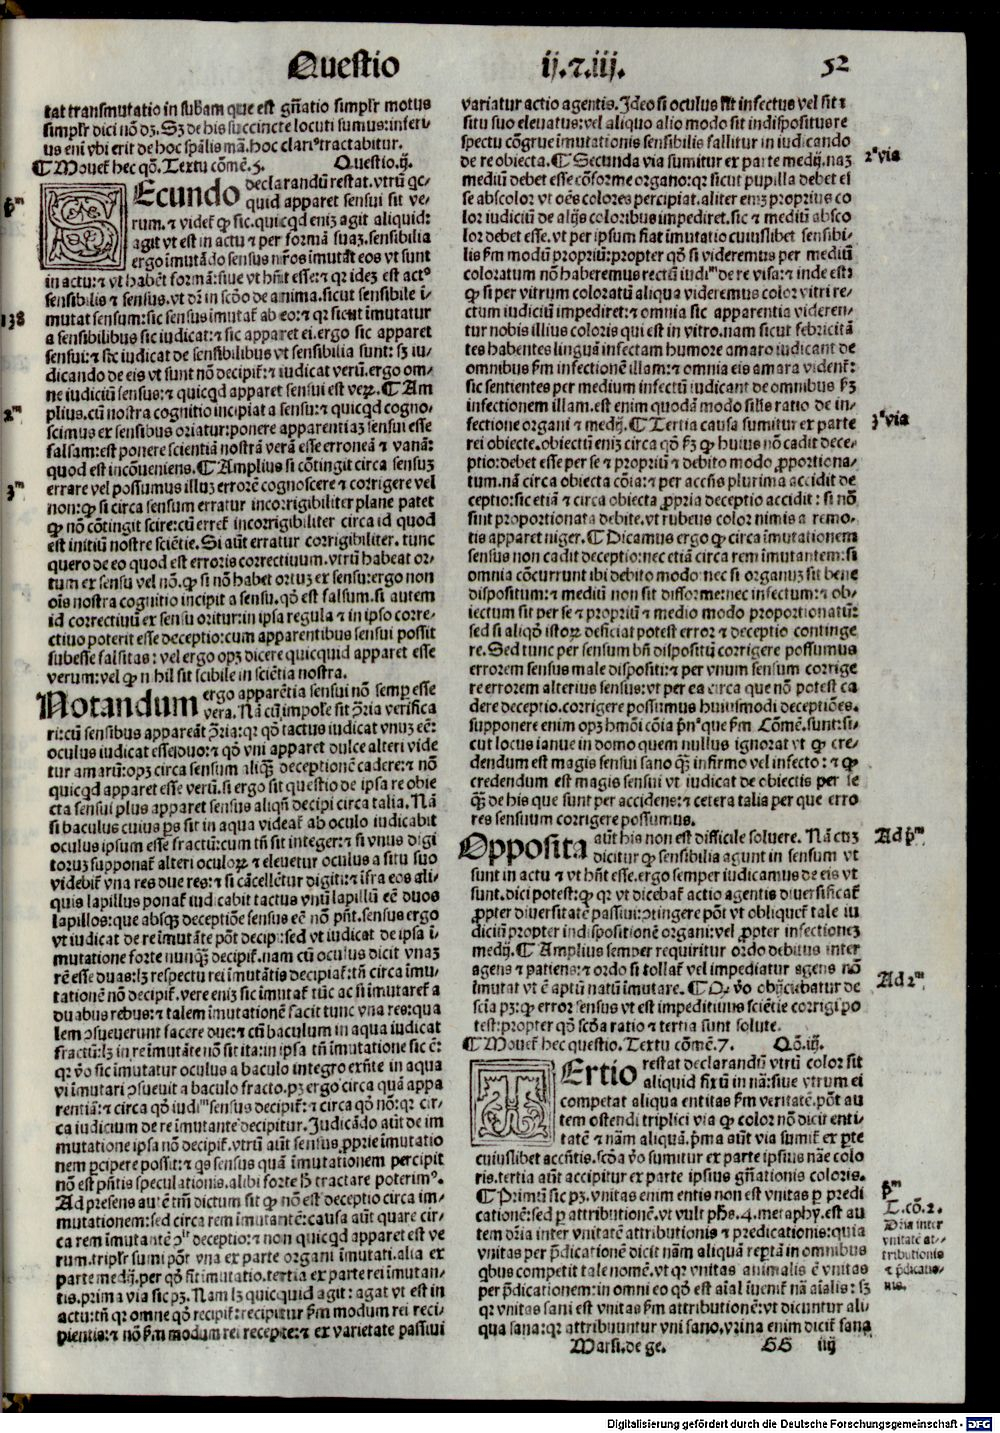 Questio ij.⁊.iij. 52
tat transmutatio in subam que est gñatio simplr motus
simplr dici nõ dꝫ. Sꝫ de his succincte locuti sumus: inferi-
us eni vbi erit de hoc spãlis mã. hoc clariꝰ tractabitur.
¶ Mouet hec qõ. Textu cõmẽ. 5. Questio. ij.
Secundo declarandũ restat. vtrũ qc-
quid apparet sensui sit ve-
rum. ⁊ videt̃ ꝙ sic. quicqd enĩ agit aliquid:
agit vt est in actu ⁊ per formã suaꝫ. sensibilia
ergo imutãdo sensus nr̃os imutãt eos vt sunt
in actu: ⁊ vt habẽt formã: siue vt hñt esse: ⁊ qꝛ ideꝫ est actꝰ
sensibilis ⁊ sensus. vt dr̃ in scõo de anima. sicut sensibile ĩ-
mutat sensum: sic sensus imutat̃ ab eo: ⁊ qꝛ sicut imutatur
a sensibilibus sic iudicat: ⁊ sic apparet ei. ergo sic apparet
sensui: ⁊ sic iudicat de sensibilibus vt sensibilia sunt: sꝫ iu-
dicando de eis vt sunt nõ decipit̃: ⁊ iudicat verũ. ergo om-
ne iudiciũ sensus: ⁊ quicqd apparet sensui est veꝝ. ¶ Am
plius. cũ nostra cognitio incipiat a sensu: ⁊ quicqd cogno-
scimus ex sensibus oriatur: ponere apparentiaꝫ sensui esse
falsam: est ponere scientiã nostrã verã esse erroneã ⁊ vanã:
quod est incõueniens. ¶ Amplius si cõtingit circa sensuꝫ
errare vel possumus illuꝫ errorẽ cognoscere ⁊ corrigere vel
non: ꝙ si circa sensum erratur incorrigibiliter plane patet
ꝙ nõ cõtingit scire: cũ erret̃ incorrigibiliter circa id quod
est initiũ nostre sciẽtie. Si aũt erratur corrigibiliter. tunc
quero de eo quod est erroris correctiuum. vtrũ habeat or-
tum ex sensu vel nõ. ꝙ si nõ habet ortuꝫ ex sensu: ergo non
oĩs nostra cognitio incipit a sensu. qõ est falsum. si autem
id correctiuũ ex sensu oritur: in ipsa regula ⁊ in ipso corre-
ctiuo poterit esse deceptio: cum apparentibus sensui possit
subesse falsitas: vel ergo opꝫ dicere quicquid apparet esse
verum: vel ꝙ nihil sit scibile in sciẽtia nostra.
Notandum ergo apparẽtia sensui nõ semꝑ esse
vera. Nã cũ impole sit ɔ̃ria verifica
ri: cũ sensibus appareãt ɔ̃ria: qꝛ qõ tactus iudicat vnuꝫ eẽ:
oculus iudicat esse duo: ⁊ qõ vni apparet dulce alteri vide
tur amarũ: opꝫ circa sensum aliqꝫ deceptionẽ cadere: ⁊ nõ
quicqd apparet esse verũ. si ergo sit questio de ipsa re obie
cta sensui plus apparet sensus aliqñ decipi circa talia. Nã
si baculus cuius ꝑs sit in aqua videat̃ ab oculo iudicabit
oculus ipsum esse fractũ: cum tñ sit integer: ⁊ si vnus digi
toruꝫ supponat̃ alteri oculoꝝ ⁊ eleuetur oculus a situ suo
videbit̃ vna res due res: ⁊ si cãcellẽtur digiti: ⁊ ĩfra eos ali-
quis lapillus ponat̃ iudicabit tactus vnũ lapillũ eẽ duos
lapillos: que absqꝫ deceptiõe sensus eẽ nõ pñt. sensus ergo
vt iudicat de re imutãte põt decipi: sed vt iudicat de ipsa ĩ-
mutatione forte nunqꝫ decipit̃. nam cũ oculus dicit vnaꝫ
rẽ esse duas: lꝫ respectu rei imutãtis decipiat̃: tñ circa imu-
tationẽ nõ decipit̃. vere eniꝫ sic imutat̃ tũc ac si imutaret̃ a
duabus rebus: ⁊ talem imutationẽ facit tunc vna res: qua
lem ɔsueuerunt facere due: ⁊ cũ baculum in aqua iudicat
fractũ: lꝫ in re imutãte nõ sit ita: in ipsa tñ imutatione sic ẽ:
qꝛ vo sic imutatur oculus a baculo integro exñte in aqua
vt imutari ɔsueuit a baculo fracto. pꝫ ergo circa quã appa
rentiã: ⁊ circa qõ iudᵐ sensus decipit̃: ⁊ circa qõ nõ: qꝛ cir-
ca iudicium de re imutante decipitur. Judicãdo aũt de im
mutatione ipsa nõ decipit̃. vtrũ aũt sensus ꝓprie imutatio
nem ꝑcipere possit: ⁊ qs sensus quã imutationem percipit
nõ est pñtis speculationis. alibi forte hꝫ tractare poterimꝰ.
Ad presens autẽ tm̃ dictum sit ꝙ nõ est deceptio circa im-
mutationem: sed circa rem imutantẽ: causa aũt quare cir-
ca rem imutantẽ ɔ̃ꝰ deceptio: ⁊ non quicqd apparet est ve
rum. triplr sumi põt vna ex parte organi imutati. alia ex
parte medij. per qõ fit imutatio. tertia ex parte rei imutan-
tis. prima via sic pꝫ. Nam lꝫ quicquid agit: agat vt est in
actu: tñ qꝛ omne qõ recipit̃: recipitur ẜm modum rei reci-
pientis: ⁊ nõ ẜm modum rei recepte: ⁊ ex varietate passiui
variatur actio agentis. Jdeo si oculus sit infectus vel sit ĩ
situ suo eleuatus: vel aliquo alio modo sit indispositus re
spectu cõgrue imutationis sensibilis fallitur in iudicando
de re obiecta. ¶ Secunda via sumitur ex parte medij. naꝫ
mediũ debet esse cõforme organo: qꝛ sicut pupilla debet es
se abscolor vt oẽs colores percipiat. aliter eniꝫ proprius co
lor iudiciũ de alijs coloribus impediret. sic ⁊ mediũ absco
lor debet esse. vt per ipsum fiat imutatio cuiuslibet sensibi-
lis ẜm modũ propriũ: propter qõ si videremus per mediũ
coloratum nõ haberemus rectũ iudiᵐ de re visa: ⁊ inde est:
ꝙ si per vitrum coloratũ aliqua videremus color vitri re-
ctum iudiciũ impediret: ⁊ omnia sic apparentia videren-
tur nobis illius coloris qui est in vitro. nam sicut febricitã
tes habentes linguã infectam humore amaro iudicant de
omnibus ẜm infectionẽ illam: ⁊ omnia eis amara vident̃:
sic sentientes per medium infectũ iudicant de omnibus ẜꝫ
infectionem illam. est enim quodã modo silis ratio de in-
fectione organi ⁊ medij. ¶ Tertia causa sumitur ex parte
rei obiecte. obiectũ eniꝫ circa qõ ẜꝫ ꝙ huius nõ cadit dece-
ptio: debet esse per se ⁊ propriũ ⁊ debito modo ꝓportiona-
tum. nã circa obiecta cõia: ⁊ per accñs plurima accidit de
ceptio: sic etiã ⁊ circa obiecta ꝓpria deceptio accidit: si nõ
sint proportionata debite. vt rubeus color nimis a remo-
tis apparet niger. ¶ Dicamus ergo ꝙ circa imutationem
sensus non cadit deceptio: nec etiã circa rem imutantem: si
omnia cõcurrunt ibi debito modo: nec si organuꝫ sit bene
dispositum: ⁊ mediũ non sit difforme: nec infectum: ⁊ ob-
iectum sit per se ⁊ propriũ ⁊ medio modo proportionatũ:
sed si aliqõ istoꝝ deficiat potest error ⁊ deceptio continge
re. Sed tunc per sensum bñ dispositũ corrigere possumus
errorem sensus male dispositi: ⁊ per vnum sensum corrige
re errorem alterius sensus: vt per ea circa que nõ potest ca
dere deceptio. corrigere possumus huiusmodi deceptiões.
supponere enim opꝫ hmõi cõia pñᵃ que ẜm Cõmẽ. sunt: si-
cut locus ianue in domo quem nullus ignorat vt ꝙ cre-
dendum est magis sensui sano qꝫ infirmo vel infecto: ⁊ ꝙ
credendum est magis sensui vt iudicat de obiectis per se
qꝫ de his que sunt per accidens: ⁊ cetera talia per que erro
res sensuum corrigere possumus.
Opposita aũt his non est difficile soluere. Nã cuꝫ
dicitur ꝙ sensibilia agunt in sensum vt
sunt in actu ⁊ vt hñt esse. ergo semper iudicamus de eis vt
sunt. dici potest: ꝙ qꝛ vt dicebat̃ actio agentis diuersificat̃
ꝓpter diuersitatẽ passiui: ɔtingere põt vt obliquet̃ tale iu
diciũ propter indispositionẽ organi: vel ꝓpter infectionez
medij. ¶ Amplius semper requiritur ordo debitus inter
agens ⁊ patiens: ⁊ ordo si tollat̃ vel impediatur agens nõ
imutat vt ẽ aptũ natũ imutare. ¶ Qꝛ vo obijciebatur de
scĩa pꝫ: ꝙ error sensus vt est impeditiuus sciẽtie corrigi po
test: propter qõ scõa ratio ⁊ tertia sunt solute.
¶ Mouet̃ hec questio. Textu cõmẽ. 7. Qõ. iij.
Tertio restat declarandũ vtrũ color sit
aliquid fixũ in nã: siue vtrum ei
competat aliqua entitas ẜm veritatẽ. põt au
tem ostendi triplici via ꝙ color nõ dicit enti-
tatẽ ⁊ nãm aliquã. pͥma aũt via sumit̃ ex ꝑte
cuiuslibet accñtis. scõa vo sumitur ex parte ipsius nãe colo
ris. tertia aũt accipitur ex parte ipsius gñationis coloris.
¶ Primũ sic pꝫ. vnitas enim entis non est vnitas ꝑ predi
cationẽ: sed ꝑ attributionẽ. vt vult phs. 4. metaphy. est au
tem dr̃ia inter vnitatẽ attributionis ⁊ predicationis: quia
vnitas per p̃dicationẽ dicit nãm aliquã reꝑtã in omnibus
qbus competit tale nomẽ. vt qꝛ vnitas animalis ẽ vnitas
per p̃dicationem: in omni eo qõ est aĩal ĩuenit̃ nã aĩalis: sꝫ
qꝛ vnitas sani est vnitas ẜm attributionẽ: vt dicuntur ali-
qua sana: qꝛ attribuuntur vni sano. vrina enim dicit̃ sana
Marsi. de ge. GG iij
pᵐ
138
2ᵐ
3ᵐ
2ª via
3ª via
Ad pᵐ
Ad 2ᵐ
pᵐ
T. cõ. 2.
Dr̃ia inter
vnitatẽ at-
tributionis
⁊ p̃dicatio-
nis.
Digitalisierung gefördert durch die Deutsche Forschungsgemeinschaft - DFG